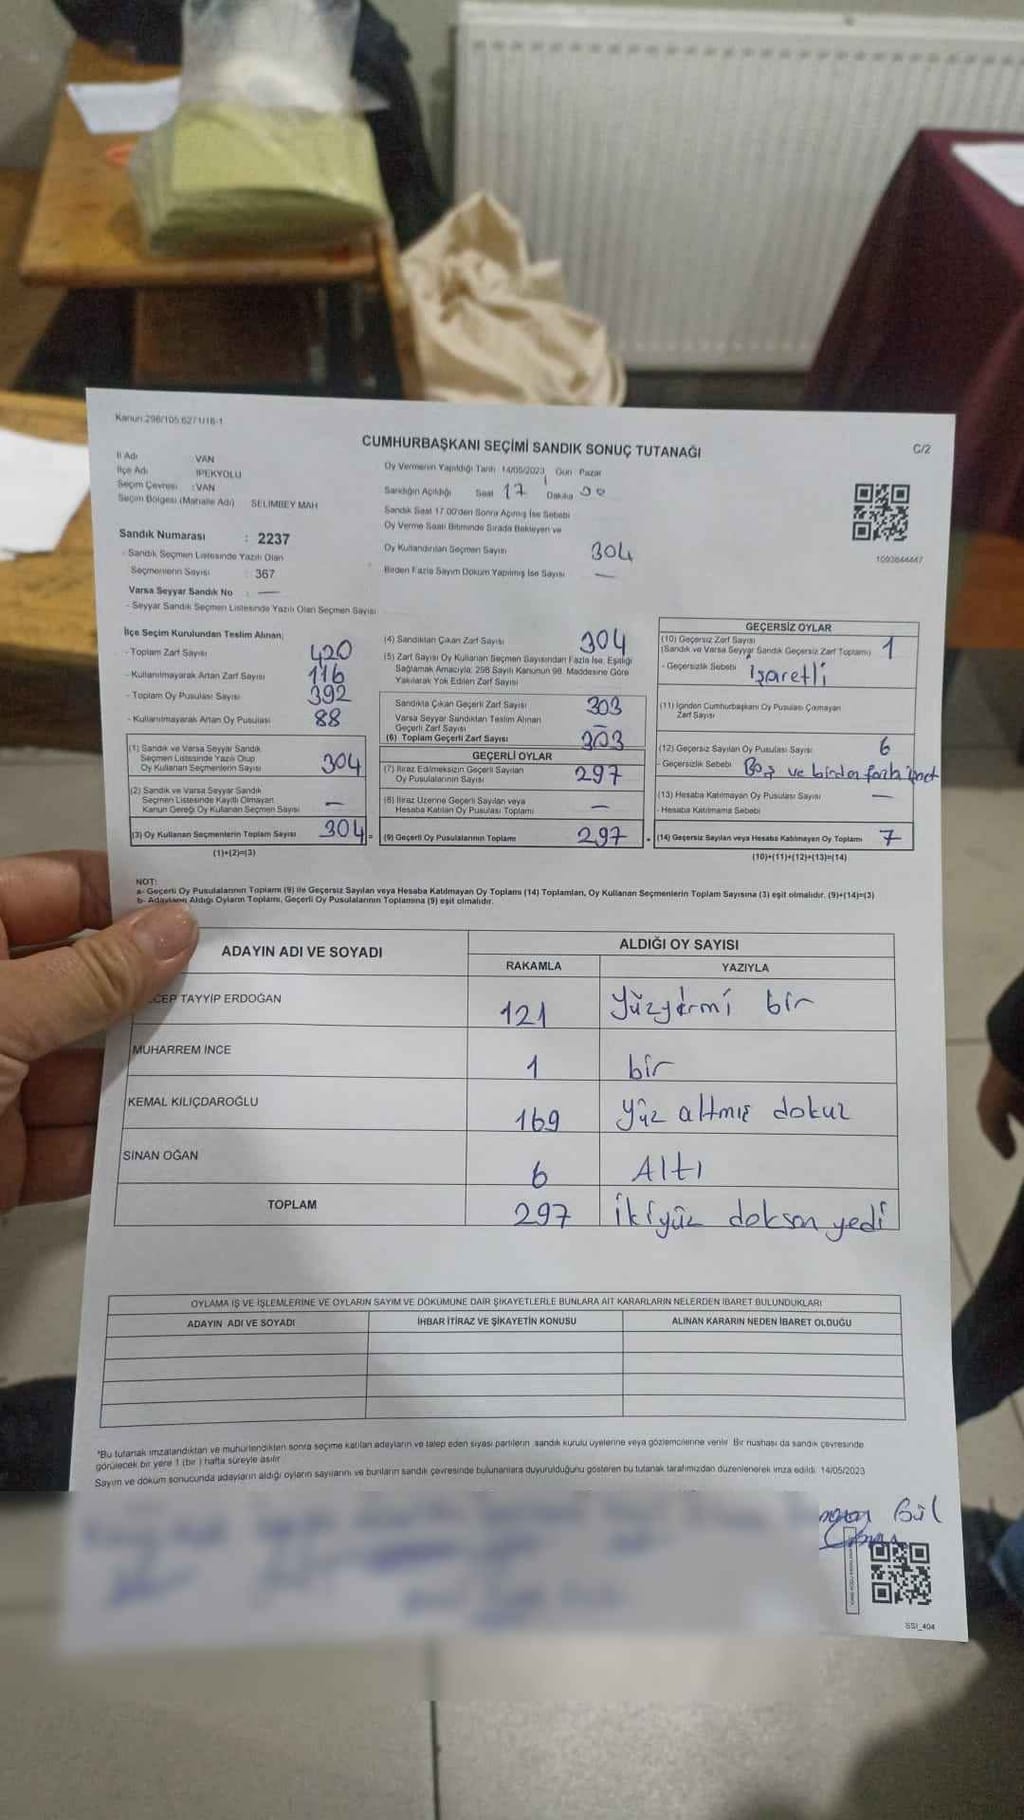 Kanun:298/105 6271/18-1
CUMHURBAŞKANI SEÇİMİ SANDIK SONUÇ TUTANAĞI
C/2
İl Adı VAN
İlçe Adı İPEKYOLU
Seçim Çevresi : VAN
Seçim Bölgesi (Mahalle Adı) SELİMBEY MAH
Oy Vermenin Yapıldığı Tarih 14/05/2023 Gün Pazar
Sandığın Açıldığı Saat 17 Dakika 30
Sandık Saat 17.00'den Sonra Açılmış İse Sebebi
Oy Verme Saati Bitiminde Sırada Bekleyen ve
Oy Kullandırılan Seçmen Sayısı 304
Birden Fazla Sayım Döküm Yapılmış İse Sayısı —
1093844447
Sandık Numarası : 2237
- Sandık Seçmen Listesinde Yazılı Olan
Seçmenlerin Sayısı 367
Varsa Seyyar Sandık No : —
- Seyyar Sandık Seçmen Listesinde Yazılı Olan Seçmen Sayısı
İlçe Seçim Kurulundan Teslim Alınan;
- Toplam Zarf Sayısı 420
- Kullanılmayarak Artan Zarf Sayısı 116
- Toplam Oy Pusulası Sayısı 392
- Kullanılmayarak Artan Oy Pusulası 88
(1) Sandık ve Varsa Seyyar Sandık
Seçmen Listesinde Yazılı Olup
Oy Kullanan Seçmenlerin Sayısı 304
(2) Sandık ve Varsa Seyyar Sandık
Seçmen Listesinde Kayıtlı Olmayan
Kanun Gereği Oy Kullanan Seçmen Sayısı —
(3) Oy Kullanan Seçmenlerin Toplam Sayısı 304 =
(1)+(2)=(3)
(4) Sandıktan Çıkan Zarf Sayısı 304
(5) Zarf Sayısı Oy Kullanan Seçmen Sayısından Fazla İse, Eşitliği
Sağlamak Amacıyla, 298 Sayılı Kanunun 98. Maddesine Göre
Yakılarak Yok Edilen Zarf Sayısı
Sandıkta Çıkan Geçerli Zarf Sayısı 303
Varsa Seyyar Sandıktan Teslim Alınan
Geçerli Zarf Sayısı —
(6) Toplam Geçerli Zarf Sayısı 303
GEÇERLİ OYLAR
(7) İtiraz Edilmeksizin Geçerli Sayılan
Oy Pusulalarının Sayısı 297
(8) İtiraz Üzerine Geçerli Sayılan veya
Hesaba Katılan Oy Pusulası Toplamı —
(9) Geçerli Oy Pusulalarının Toplamı 297
GEÇERSİZ OYLAR
(10) Geçersiz Zarf Sayısı
(Sandık ve Varsa Seyyar Sandık Geçersiz Zarf Toplamı) 1
- Geçersizlik Sebebi İşaretli
(11) İçinden Cumhurbaşkanı Oy Pusulası Çıkmayan
Zarf Sayısı
(12) Geçersiz Sayılan Oy Pusulası Sayısı 6
- Geçersizlik Sebebi Boş ve birden fazla
(13) Hesaba Katılmayan Oy Pusulası Sayısı —
- Hesaba Katılmama Sebebi
(14) Geçersiz Sayılan veya Hesaba Katılmayan Oy Toplamı 7
(10)+(11)+(12)+(13)=(14)
NOT:
a- Geçerli Oy Pusulalarının Toplamı (9) ile Geçersiz Sayılan veya Hesaba Katılmayan Oy Toplamı (14) Toplamları, Oy Kullanan Seçmenlerin Toplam Sayısına (3) eşit olmalıdır. (9)+(14)=(3)
b- Adayların Aldığı Oyların Toplamı, Geçerli Oy Pusulalarının Toplamına (9) eşit olmalıdır.
ADAYIN ADI VE SOYADI
ALDIĞI OY SAYISI
RAKAMLA YAZIYLA
CEP TAYYİP ERDOĞAN 121 Yüzyirmi bir
MUHARREM İNCE 1 bir
KEMAL KILIÇDAROĞLU 169 Yüz altmış dokuz
SİNAN OĞAN 6 Altı
TOPLAM 297 ikiyüz doksan yedi
OYLAMA İŞ VE İŞLEMLERİNE VE OYLARIN SAYIM VE DÖKÜMÜNE DAİR ŞİKAYETLERLE BUNLARA AİT KARARLARIN NELERDEN İBARET BULUNDUKLARI
ADAYIN ADI VE SOYADI İHBAR İTİRAZ VE ŞİKAYETİN KONUSU ALINAN KARARIN NEDEN İBARET OLDUĞU
*Bu tutanak imzalandıktan ve mühürlendikten sonra seçime katılan adayların ve talep eden siyasi partilerin sandık kurulu üyelerine veya gözlemcilerine verilir. Bir nüshası da sandık çevresinde
görülecek bir yere 1 (bir ) hafta süreyle asılır
Sayım ve döküm sonucunda adayların aldığı oyların sayılarını ve bunların sandık çevresinde bulunanlara duyurulduğunu gösteren bu tutanak tarafımızdan düzenlenerek imza edildi. 14/05/2023
Gül
SSI_404